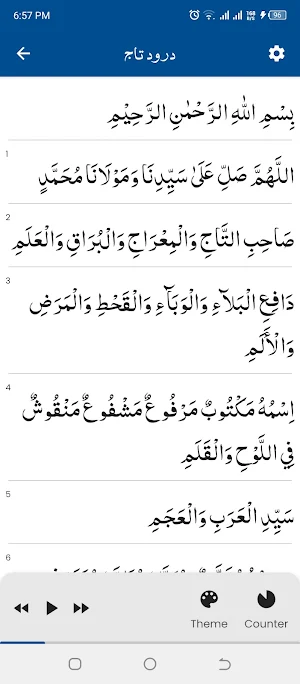 6:57 PM
96
درود تاج
بِسْمِ اللهِ الرَّحْمٰنِ الرَّحِيْمِ
1
اللَّهُمَّ صَلِّ عَلَىٰ سَيِّدِنَا وَمَوْلَانَا مُحَمَّدٍ
2
صَاحِبِ التَّاجِ وَالْمِعْرَاجِ وَالْبُرَاقِ وَالْعَلَمِ
3
دَافِعِ الْبَلَآءِ وَالْوَبَآءِ وَالْقَحْطِ وَالْمَرَضِ
وَالْأَلَمِ
4
اِسْمُهُ مَكْتُوبٌ مَرْفُوعٌ مَشْفُوعٌ مَنْقُوشٌ
فِي اللَّوْحِ وَالْقَلَمِ
5
سَيِّدِ الْعَرَبِ وَالْعَجَمِ
6
Theme
Counter